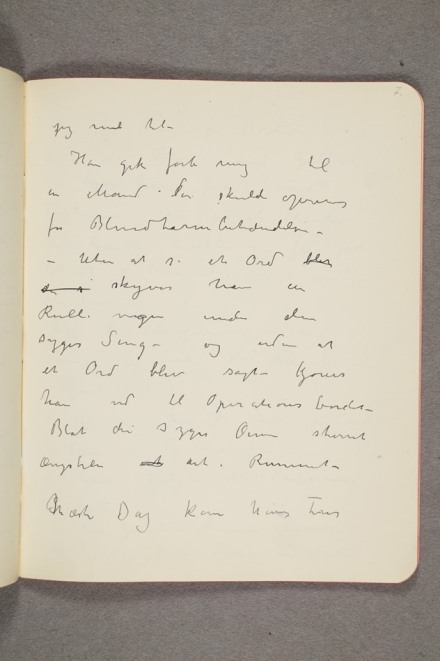 jeg med til –
Han gik forbi mig til
en Mand. Der skulde opereres
for Blindtarmbetændelse –
– Uden at si et Ord blev
skyves han en
Rulle vogn under den
syges Seng – og uden at
et Ord blev sagt – kjøres
han ud til Operations bordet –
Blot den Syges Øine stirret
ængstelig ut i Rummet –
Næste Dag kom hans Frue